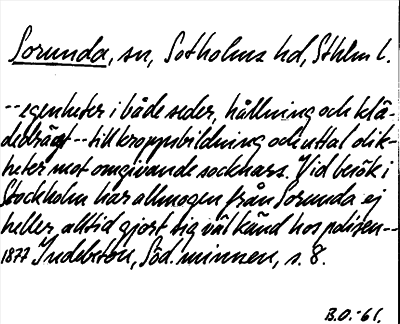 Sorunda, sn, Sotholms hd, Sthlm l.
-- egenheter i både seder, hållning och klä-
dedrägt -- till kroppsbildning och uttal olik-
heter mot omgivande socknars. Vid besök i
Stockholm har allmogen från Sorunda ej
heller alltid gjort sig väl känd hos polisen --
1877 Indebetou, Söd. minnen, s. 8.
B.O. -61.